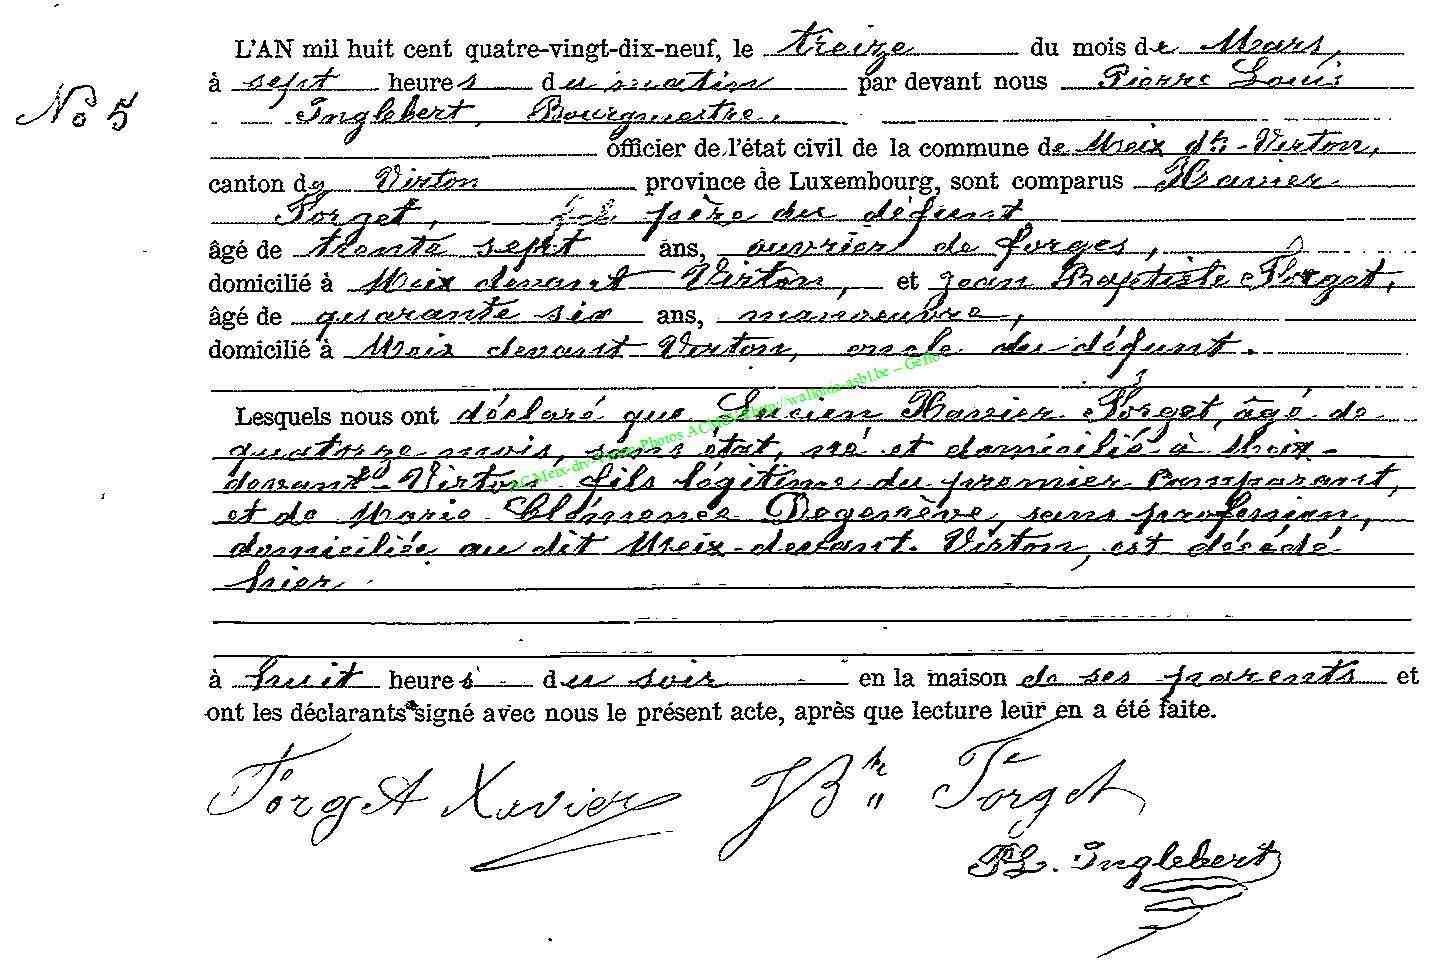 L'AN mil huit cent quatre-vingt-dix-neuf, le treize du mois de Mars,
à sept heures du matin par devant nous Pierre Louis
No 5
Inglebert, Bourgmestre,
officier de l'état civil de la commune de Meix dt-Virton,
canton de Virton province de Luxembourg, sont comparus Xavier
Forget, père du défunt
âgé de trente sept ans, ouvrier de forges,
domicilié à Meix devant Virton, et Jean Baptiste Forget,
âgé de quarante six ans, manoeuvre,
domicilié à Meix devant Virton, oncle du défunt.
Lesquels nous ont déclaré que Lucien Xavier Forget, âgé de
quatorze mois, sans état, né et domicilié à Meix-
devant-Virton fils légitime du premier comparant,
et de Marie Clémence Degenève, sans profession,
domiciliée au dit Meix-devant-Virton, est décédé
hier
à huit heures du soir en la maison de ses parents et
ont les déclarants signé avec nous le présent acte, après que lecture leur en a été faite.
Forget Xavier JBte Forget
PL. Inglebert